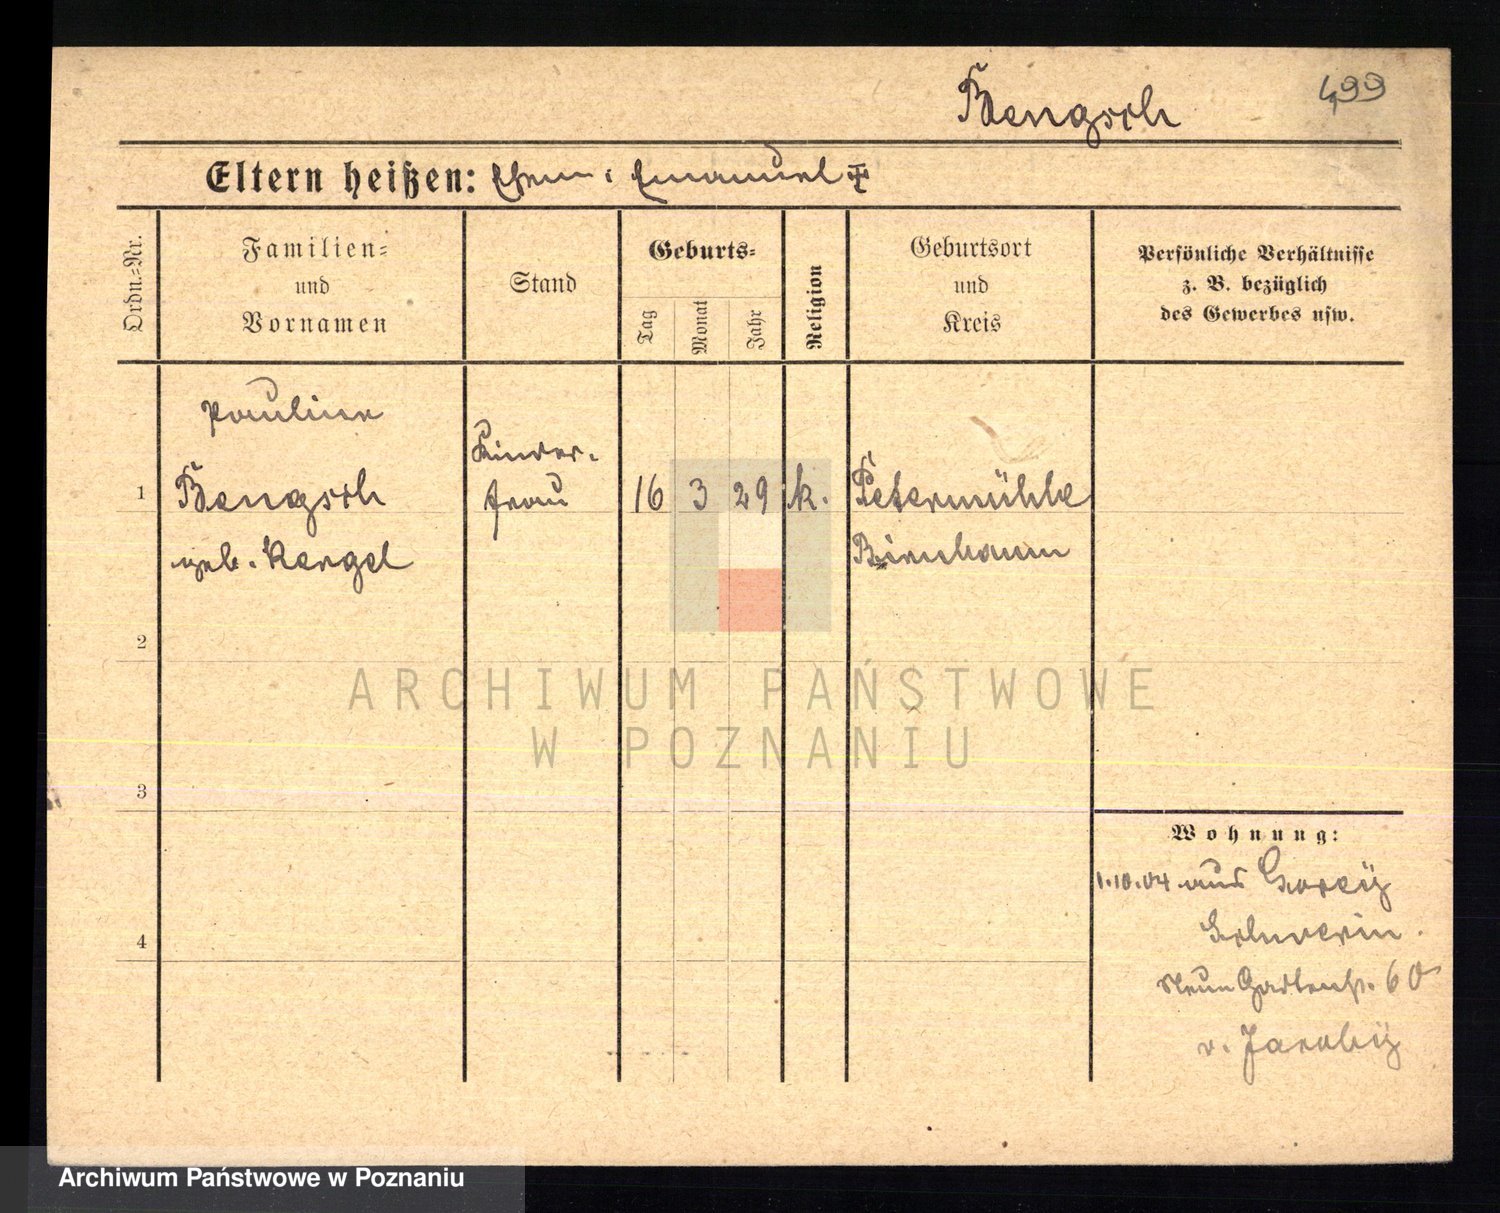 Bengsch
499
Eltern heißen: Ehem: Emanuel
Ordn.=Nr.
Familien=
und
Vornamen
Stand
Geburts=
Tag
Monat
Jahr
Religion
Geburtsort
und
Kreis
Persönliche Verhältnisse
z. B. bezüglich
des Gewerbes usw.
Pauline
Kinder-
1 Bengsch frau 16 3 29 k. Petermühle
geb. Kergel Birnbaum
2
3
Wohnung:
1.10.04 aus
4 Schwerin.
Neue Gartenstr. 60
v. Jacoby
ARCHIWUM PAŃSTWOWE
W POZNANIU
Archiwum Państwowe w Poznaniu